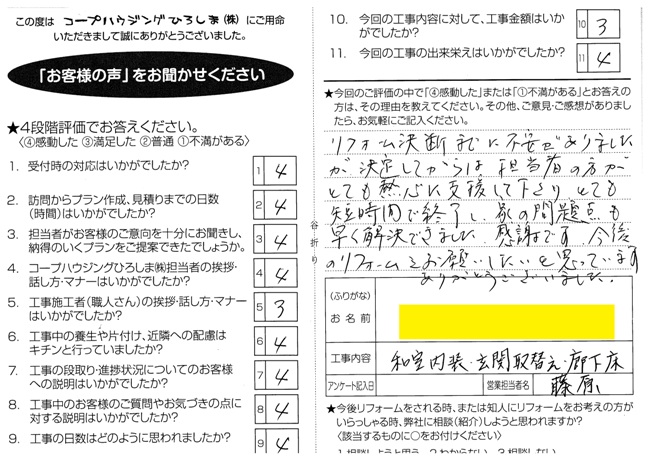 この度は コープハウジングひろしま(株) にご用命
いただきまして誠にありがとうございました。
「お客様の声」をお聞かせください
★4段階評価でお答えください。
〈④感動した ③満足した ②普通 ①不満がある〉
1. 受付時の対応はいかがでしたか? 1 4
2. 訪問からプラン作成、見積りまでの日数
(時間)はいかがでしたか? 2 4
3. 担当者がお客様のご意向を十分にお聞きし、
納得のいくプランをご提案できたでしょうか。 3 4
4. コープハウジングひろしま㈱担当者の挨拶・
話し方・マナーはいかがでしたか? 4 4
5. 工事施工者(職人さん)の挨拶・話し方・マナー
はいかがでしたか? 5 3
6. 工事中の養生や片付け、近隣への配慮は
キチンと行っていましたか? 6 4
7. 工事の段取り・進捗状況についてのお客様
への説明はいかがでしたか? 7 4
8. 工事中のお客様のご質問やお気づきの点に
対する説明はいかがでしたか? 8 4
9. 工事の日数はどのように思われましたか? 9 4
谷折り
10. 今回の工事内容に対して、工事金額はいか
がでしたか? 10 3
11. 今回の工事の出来栄えはいかがでしたか? 11 4
★今回のご評価の中で「④感動した」または「①不満がある」とお答え
の方は、その理由を教えてください。その他、ご意見・ご感想がありまし
たら、お気軽にご記入ください。
リフォーム決断までに不安がありました
が決定してからは担当者の方が
とても熱心に支援して下さり とても
短時間で終了し、家の問題点も
早く解決できました 感謝です。今後
のリフォームもお願いしたいと思っています
ありがとうございました。
(ふりがな)
お名前
工事内容 和室内装・玄関取替え・廊下床
アンケート記入日 営業担当者名 藤原
★今後リフォームをされる時、または知人にリフォームをお考えの方が
いらっしゃる時、弊社に相談(紹介)しようと思われますか?
〈該当するものに○をお付けください〉
1.相談しようと思う 2.わからない 3.相談しない